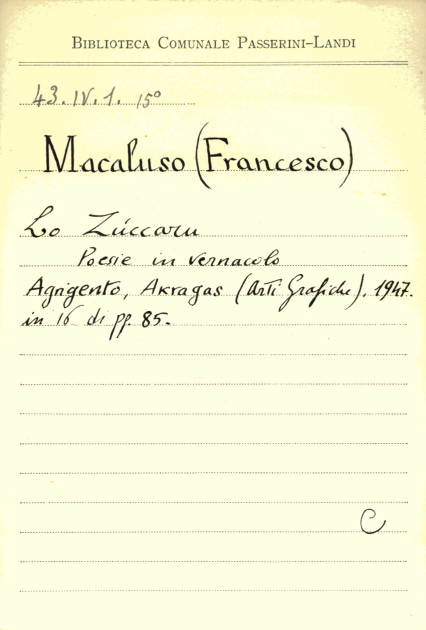 BIBLIOTECA COMUNALE PASSERINI-LANDI
43. IV. 1. 15º
Macaluso (Francesco)
Lo Zúccaru
Poesie in vernacolo
Agrigento, Akragas (Arti Grafiche). 1947.
in 16 di pp. 85.
C